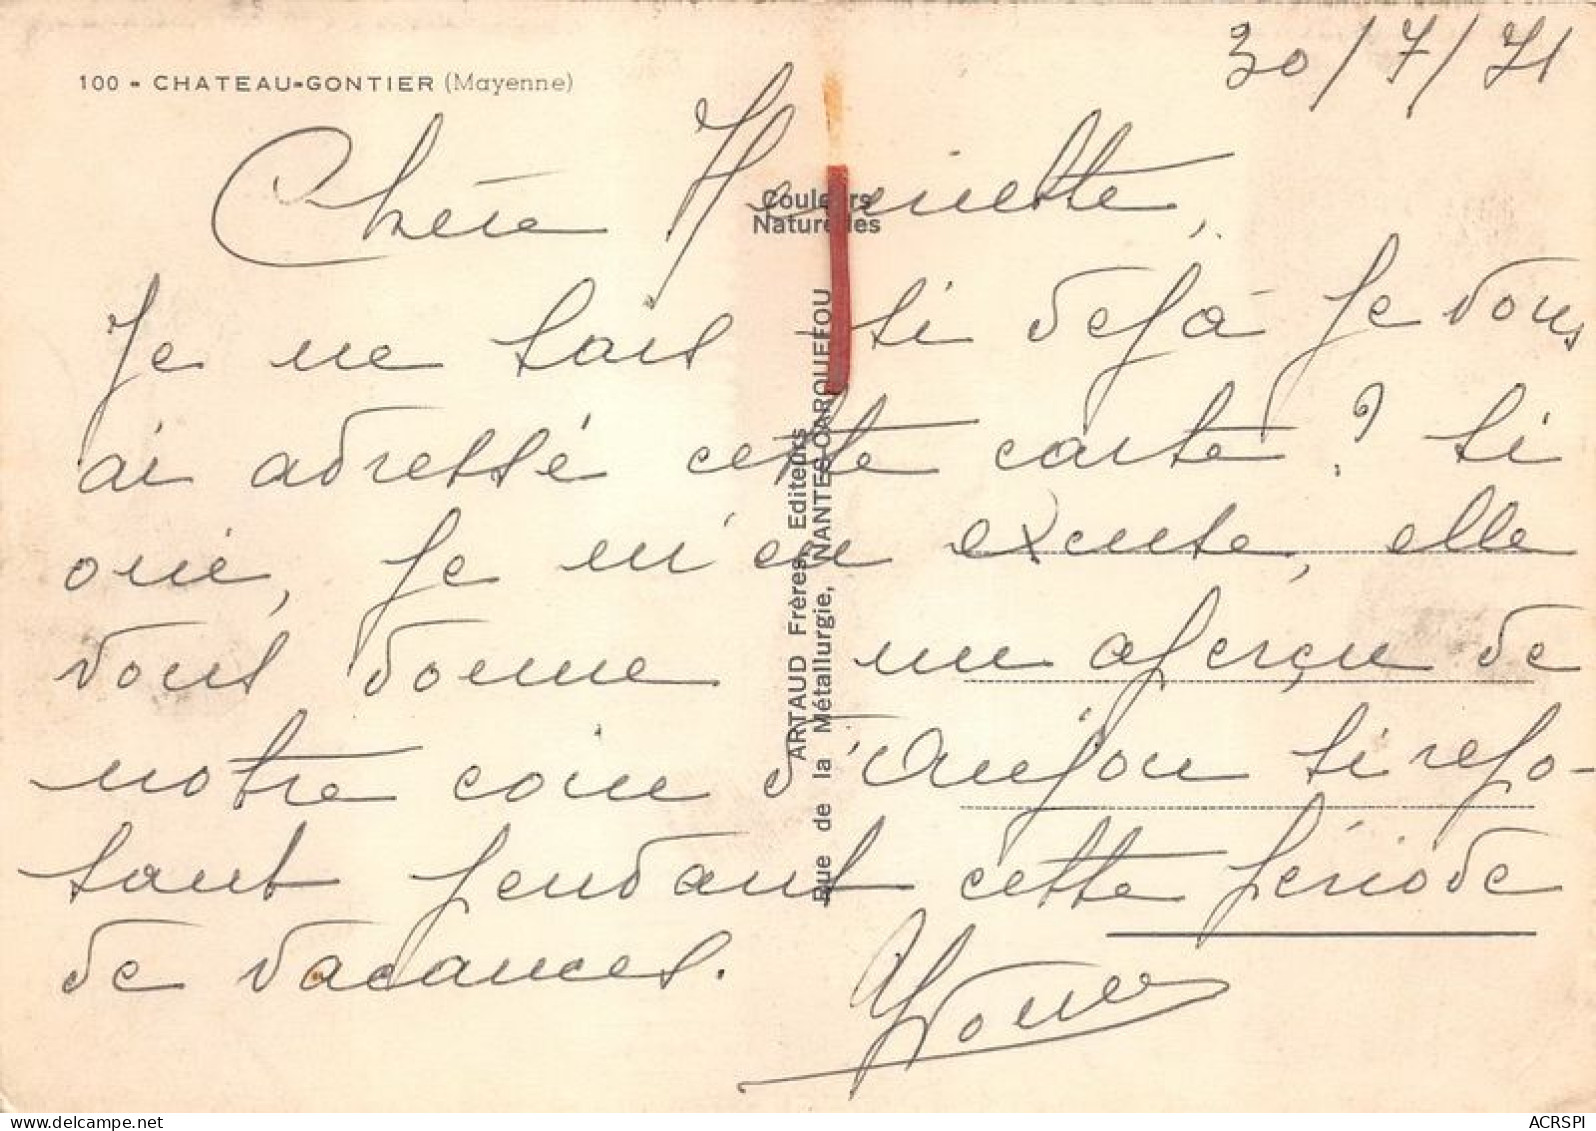 30/7/71
100 - CHATEAU-GONTIER (Mayenne)
Chère Henriette,
Couleurs
Naturelles
Je ne sais si déjà je vous
ai adressé cette carte ? si
oui, je m'en excuse, elle
vous donne un aperçu de
notre coin d'Anjou si repo-
sant pendant cette période
de vacances.
Yvonne
ARTAUD Frères, Editeurs
Rue de la Métallurgie, NANTES-CARQUEFOU
delcampe.net
ACRSPI